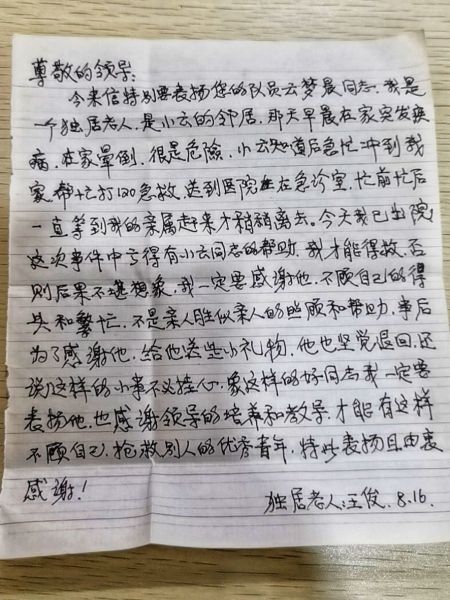 尊敬的领导:
今来信特别要表扬您的队员云梦晨同志,我是
一个独居老人,是小云的邻居,那天早晨在家突发疾
病,在家晕倒,很是危险,小云知道后急忙冲到我
家,帮忙打120急救,送到医院在急诊室,忙前忙后
一直等到我的亲属赶来才稍稍离去。今天我已出院,
这次事件中亏得有小云同志的帮助,我才能得救,否
则后果不堪想象,我一定要感谢他,不顾自己的得
失和繁忙,不是亲人胜似亲人的照顾和帮助,事后
为了感谢他,给他送些小礼物,他也坚觉退回,还
说这样的小事不必挂心,象这样的好同志我一定要
表扬他,也感谢领导的培养和教导,才能有这样
不顾自己,抢救别人的优秀青年,特此表扬且由衷
感谢!
独居老人:王俊.8.16.